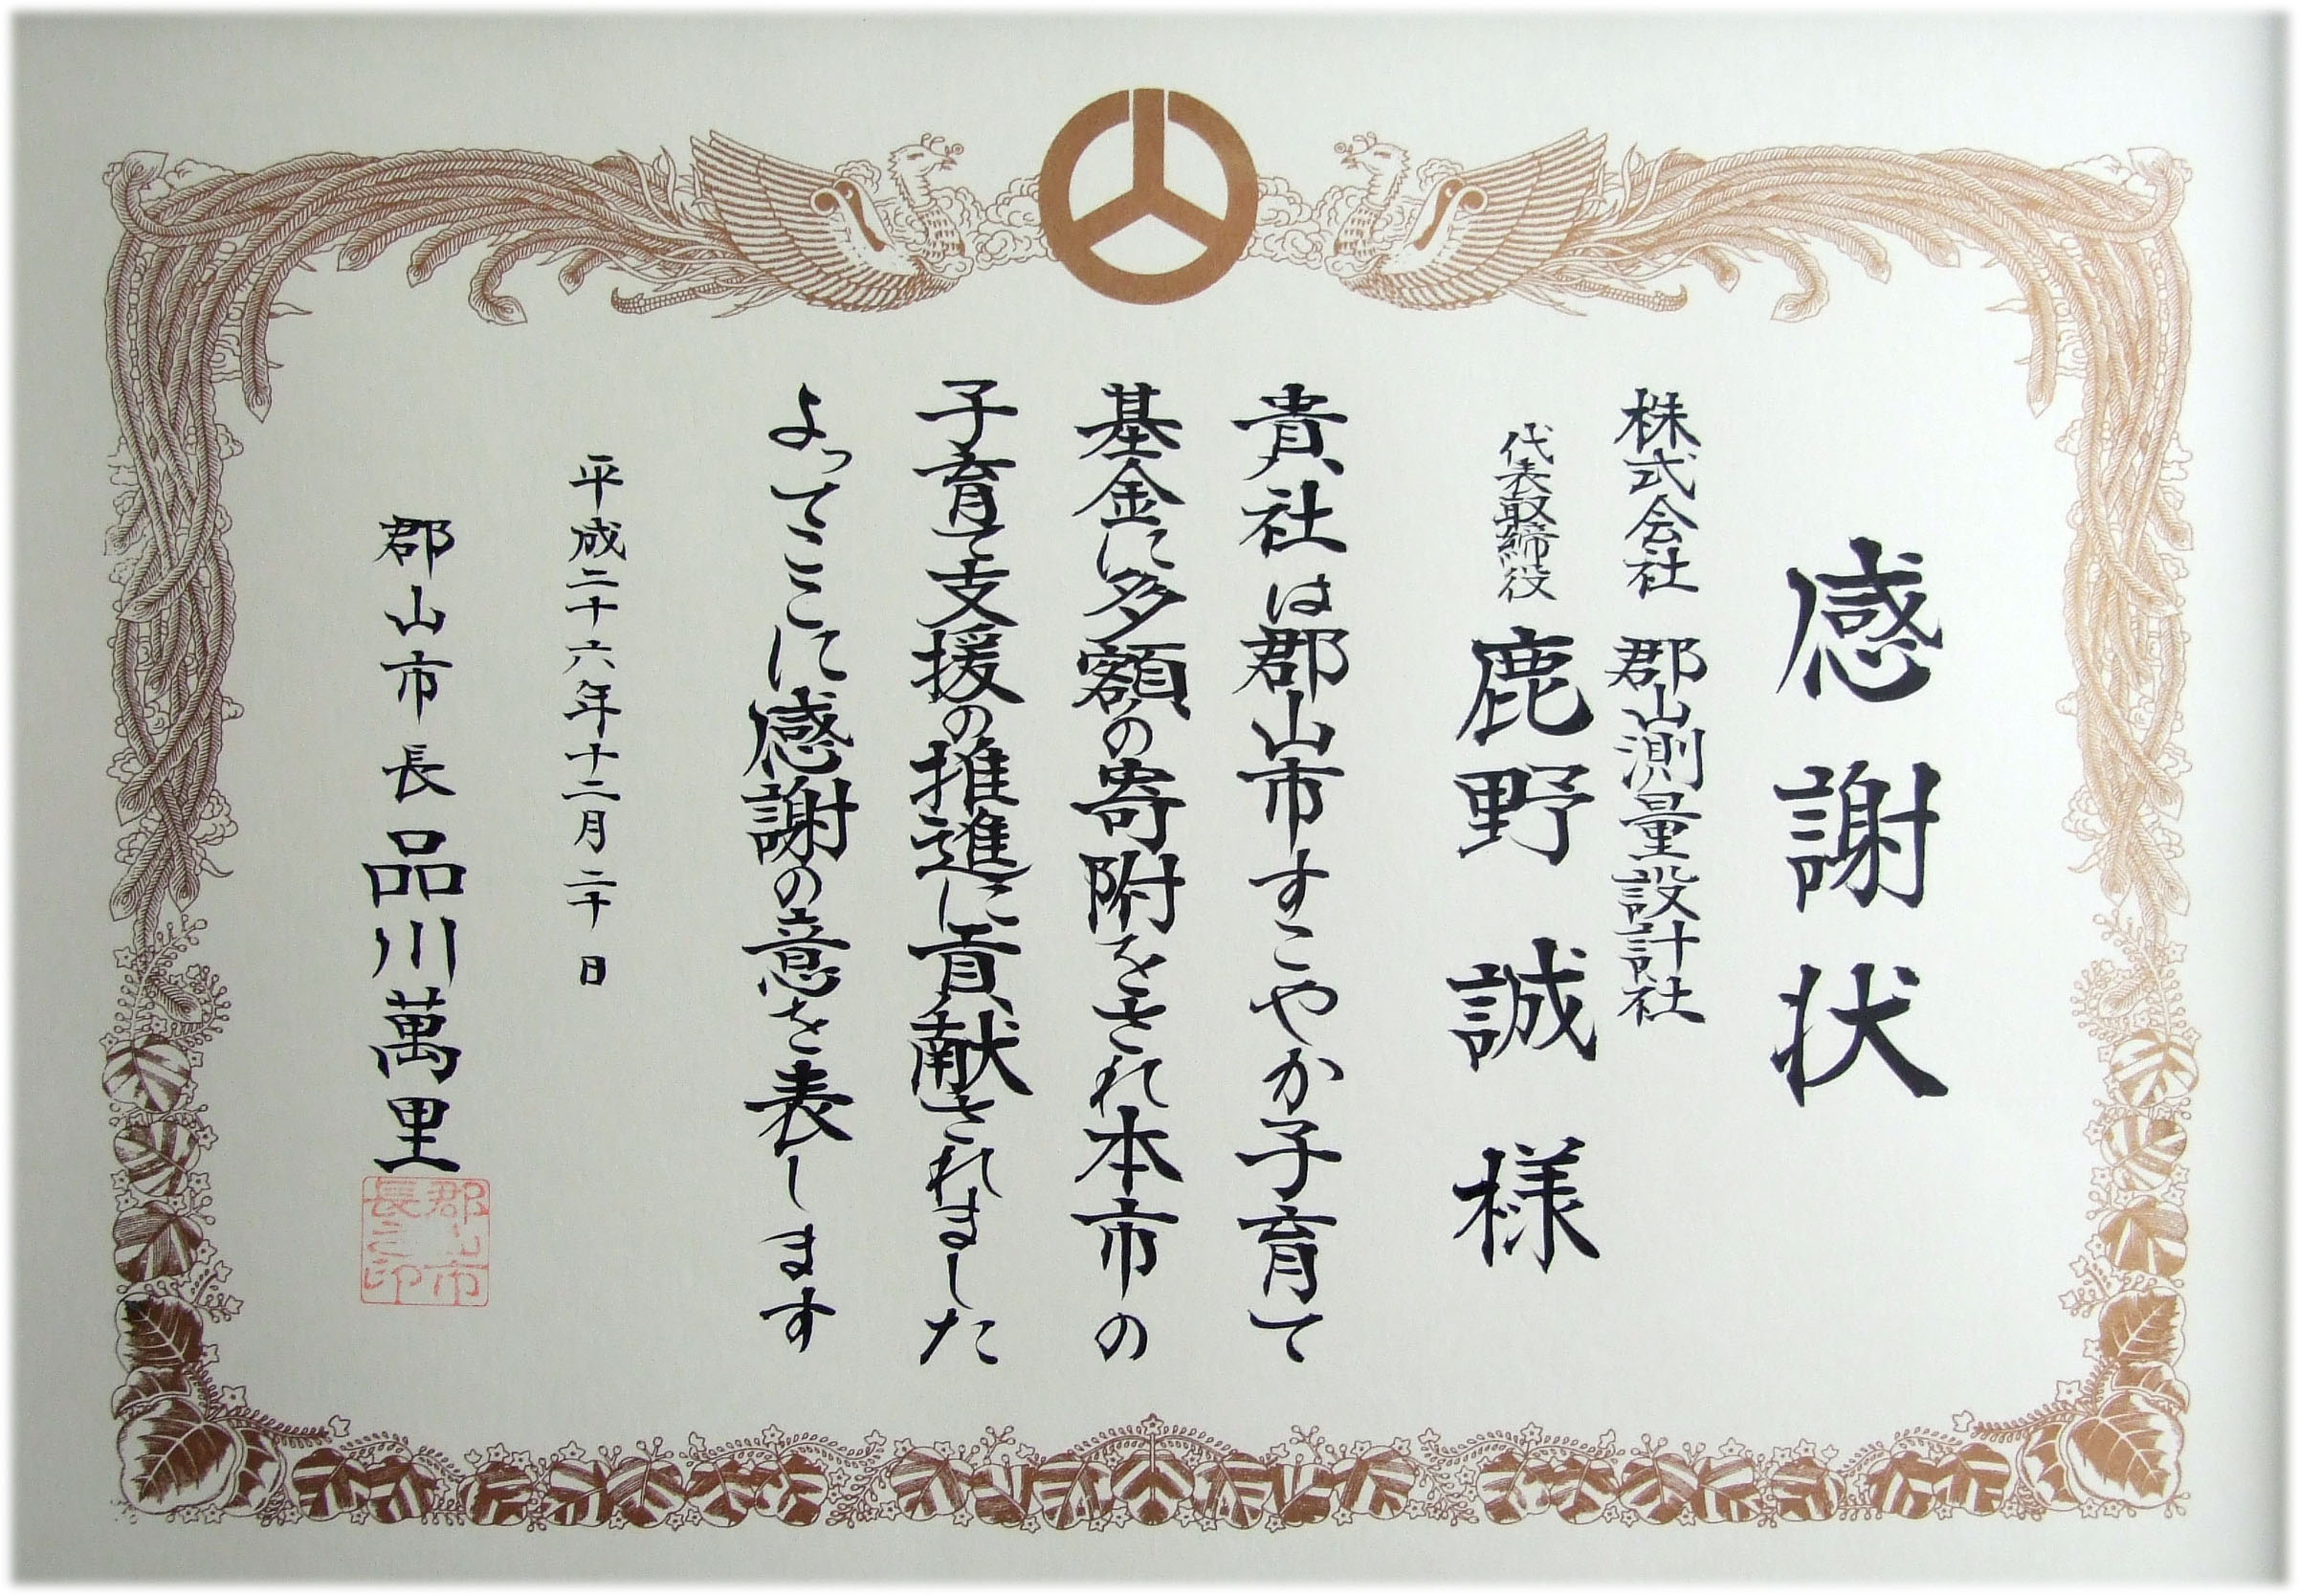 感謝状
株式会社 郡山測量設計社
代表取締役 鹿野 誠 様
貴社は郡山市すこやか子育て
基金に多額の寄附をされ本市の
子育て支援の推進に貢献されました
よってここに感謝の意を表します
平成二十六年十二月二十日
郡山市長 品川萬里
郡山市
長之印